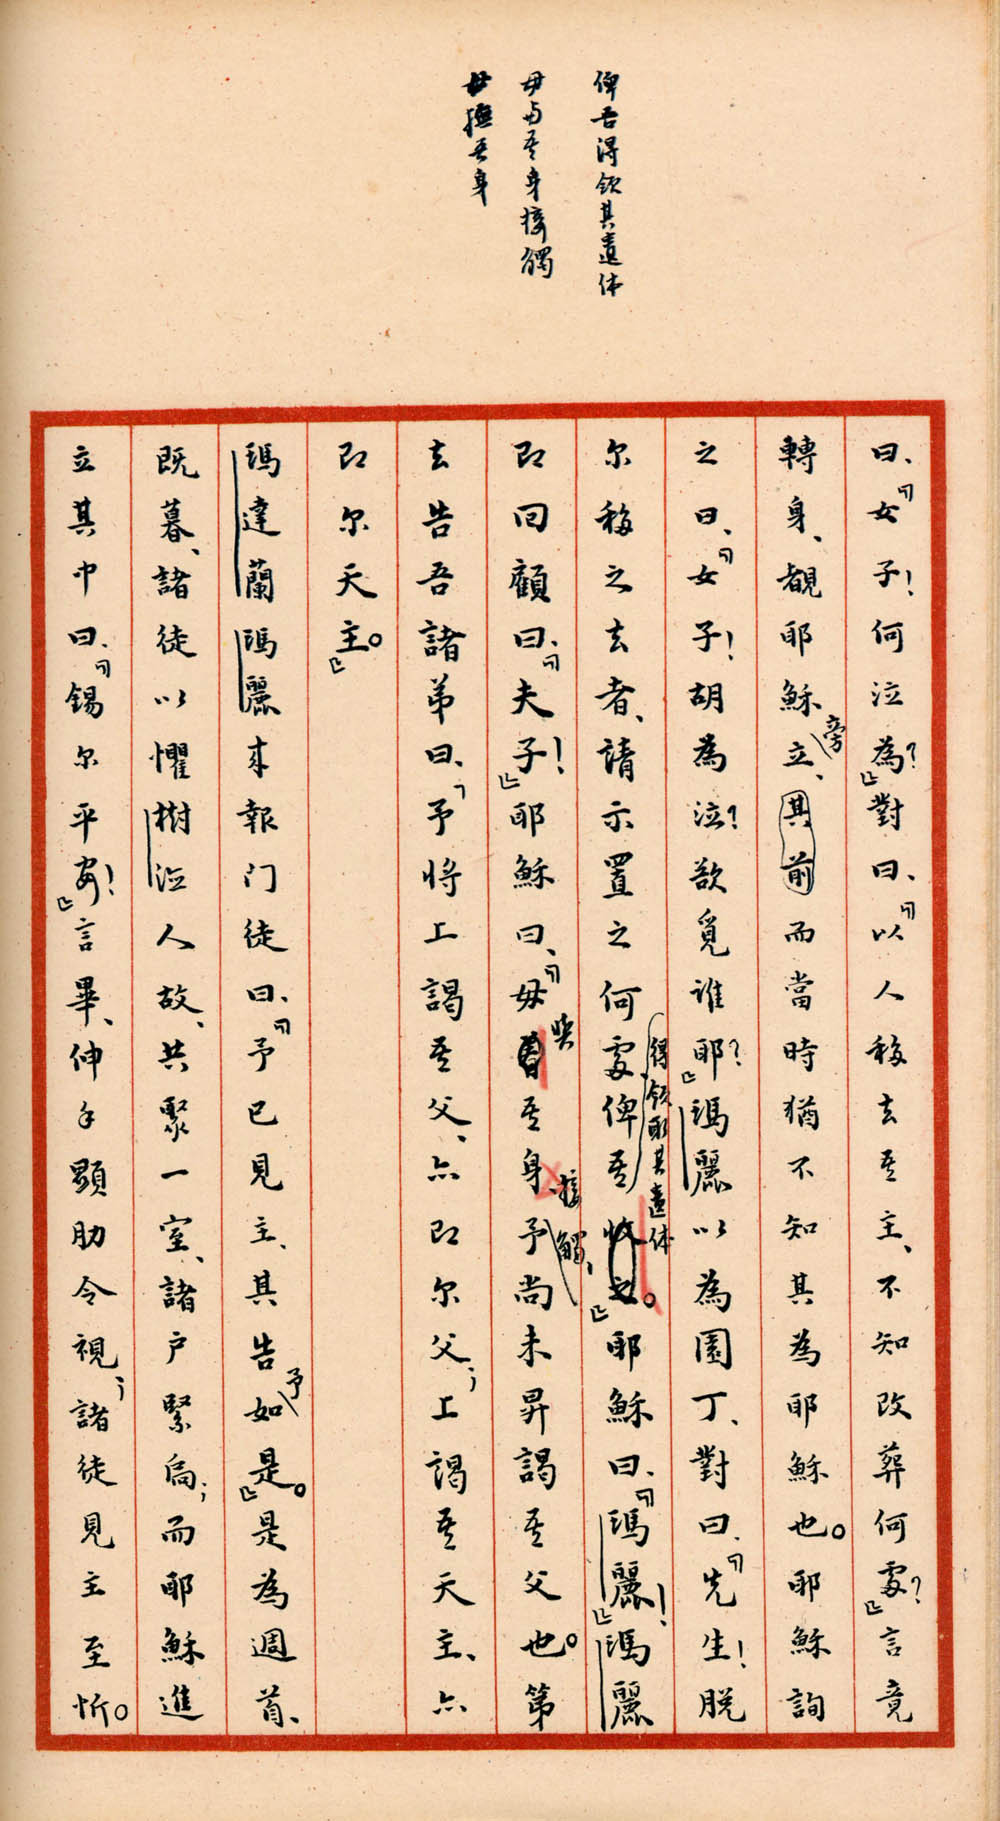 俾吾得領其遺体
毋与吾身接觸
毋撫吾身
曰、「女子!何泣為?」對曰、「以人移去吾主、不知改葬何處?」言竟
轉身、覩耶穌立旁、其前而當時猶不知其為耶穌也。耶穌詢
之曰、「女子!胡為泣?欲覓誰耶?」瑪麗以為園丁、對曰、「先生!脱
尔移之去者、請示置之何處俾吾收之。」耶穌曰、「瑪麗!」瑪麗
得領取其遺体
即回顧曰、「夫子!」耶穌曰、「毋吾身、予尚未昇謁吾父也。第
與
接觸、
去告吾諸弟曰、「予將上謁吾父、亦即尔父;上謁吾天主、亦
即尔天主。」
瑪達蘭瑪麗來報门徒曰、「予已見主、其告予如是。」是為週首、
既暮、諸徒以懼樹泣人故、共聚一室、諸户緊扃;而耶穌進
立其中曰、「錫尔平安!」言畢、伸手顯肋令視;諸徒見主至忻。